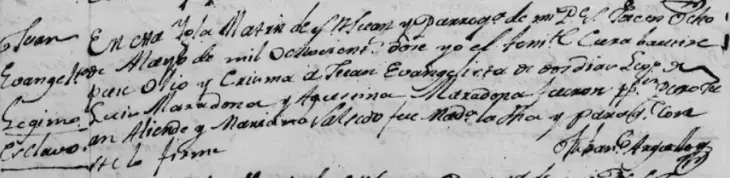 Juan
Evangelis
Legimo
Esclavo
En esta Yg.la Matriz de S.n Juan y Parroq.a de mi P.e S.n en ocho
de Mayo de mil Ochocient.s doce yo el then.te Cura bautise
puse Olio y Crisma á Juan Evangelista de dos dias Leg.o de
Luis Maradona y Agustina Maradona fueron pp.s Pedro Ju
an Aliende y Mariana Salcedo fue Mad.a la dha y para q.e Con
ste lo firme